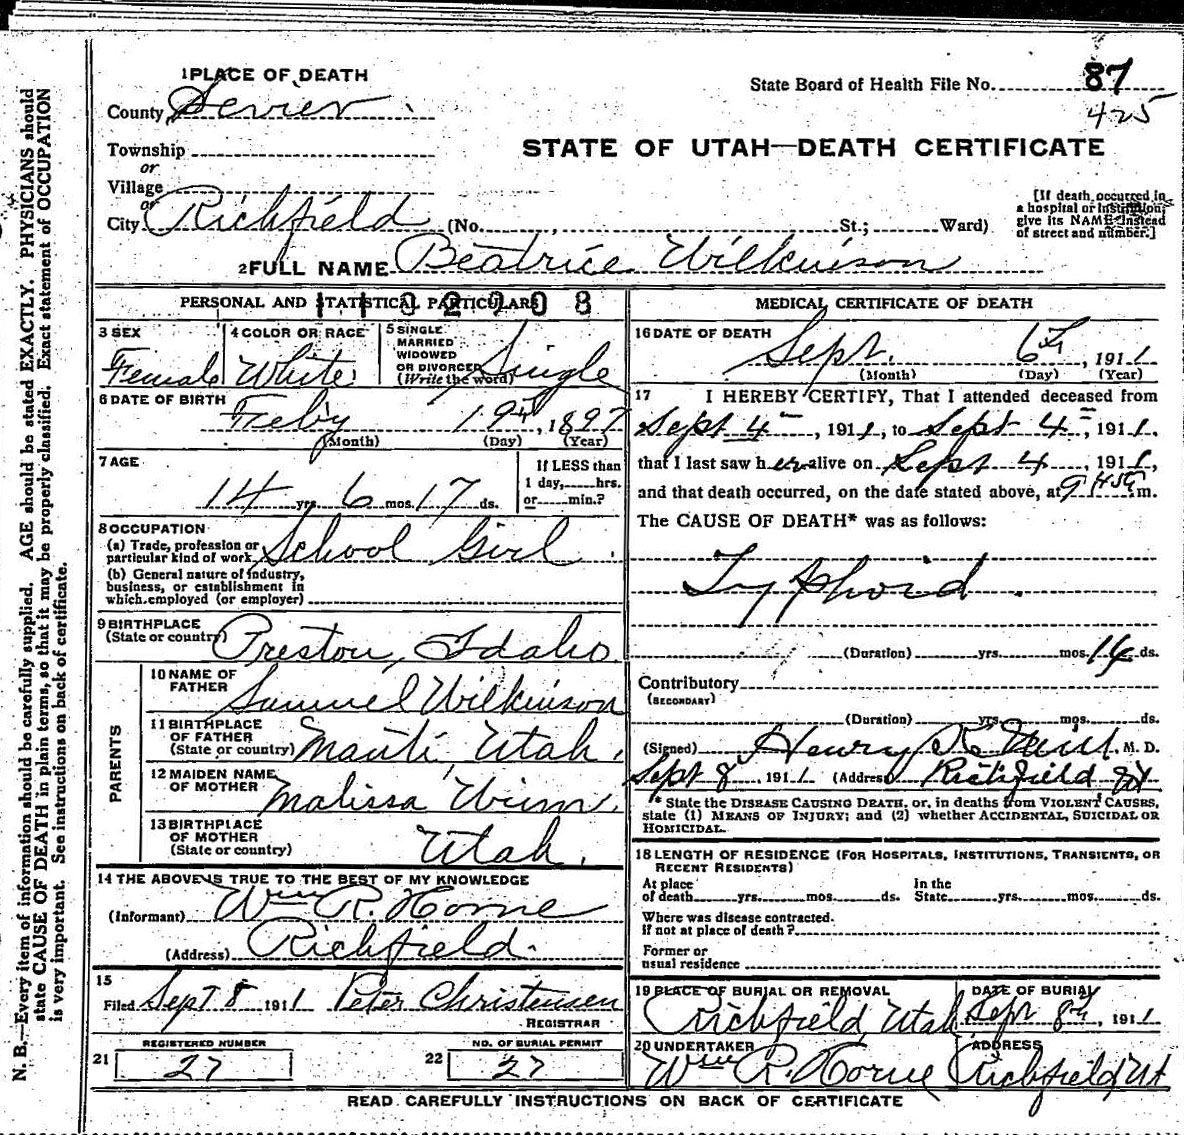 1 PLACE OF DEATH
County Sevier
Township
or
Village
or
City Richfield (No. St.; Ward)
State Board of Health File No. 87
425
STATE OF UTAH—DEATH CERTIFICATE
[If death occurred in
a hospital or institution,
give its NAME instead
of street and number.]
2 FULL NAME Beatrice Wilkinson
PERSONAL AND STATISTICAL PARTICULARS
3 SEX
Female
4 COLOR OR RACE
White
5 SINGLE
MARRIED
WIDOWED
OR DIVORCED
(Write the word)
Single
6 DATE OF BIRTH
Feby 19th, 1897
(Month) (Day) (Year)
7 AGE
14 yrs. 6 mos. 17 ds.
If LESS than
1 day, hrs.
or min.?
8 OCCUPATION
(a) Trade, profession or
particular kind of work School Girl
(b) General nature of industry,
business, or establishment in
which employed (or employer)
9 BIRTHPLACE
(State or country) Preston, Idaho.
PARENTS
10 NAME OF
FATHER Samuel Wilkinson
11 BIRTHPLACE
OF FATHER
(State or country) Manti, Utah,
12 MAIDEN NAME
OF MOTHER Malissa
13 BIRTHPLACE
OF MOTHER
(State or country) Utah.
14 THE ABOVE IS TRUE TO THE BEST OF MY KNOWLEDGE
(Informant) Wm R. Horne
(Address) Richfield.
15
Filed Sept 8 1911 Peter Christensen
REGISTRAR
21 REGISTERED NUMBER
27
22 NO. OF BURIAL PERMIT
27
MEDICAL CERTIFICATE OF DEATH
16 DATE OF DEATH
Sept. 6th, 1911
(Month) (Day) (Year)
17 I HEREBY CERTIFY, That I attended deceased from
Sept 4, 1911, to Sept 4, 1911.
that I last saw her alive on Sept 4, 1911,
and that death occurred, on the date stated above, at 9 m.
The CAUSE OF DEATH* was as follows:
Typhoid
(Duration) yrs. mos. 14 ds.
Contributory
(SECONDARY)
(Duration) yrs. mos. ds.
(Signed) Henry K. Neill M. D.
Sept 8, 1911 (Address) Richfield Ut
* State the DISEASE CAUSING DEATH, or, in deaths from VIOLENT CAUSES,
state (1) MEANS OF INJURY; and (2) whether ACCIDENTAL, SUICIDAL OR
HOMICIDAL.
18 LENGTH OF RESIDENCE (FOR HOSPITALS, INSTITUTIONS, TRANSIENTS, OR
RECENT RESIDENTS)
At place
of death yrs. mos. ds.
In the
State yrs. mos. ds.
Where was disease contracted.
if not at place of death?
Former or
usual residence
19 PLACE OF BURIAL OR REMOVAL
Richfield, Utah
DATE OF BURIAL
Sept 8th, 1911
20 UNDERTAKER
Wm R. Horne
ADDRESS
Richfield Ut
READ CAREFULLY INSTRUCTIONS ON BACK OF CERTIFICATE
N. B.—Every item of information should be carefully supplied. AGE should be stated EXACTLY. PHYSICIANS should
state CAUSE OF DEATH in plain terms, so that it may be properly classified. Exact statement of OCCUPATION
is very important. See instructions on back of certificate.